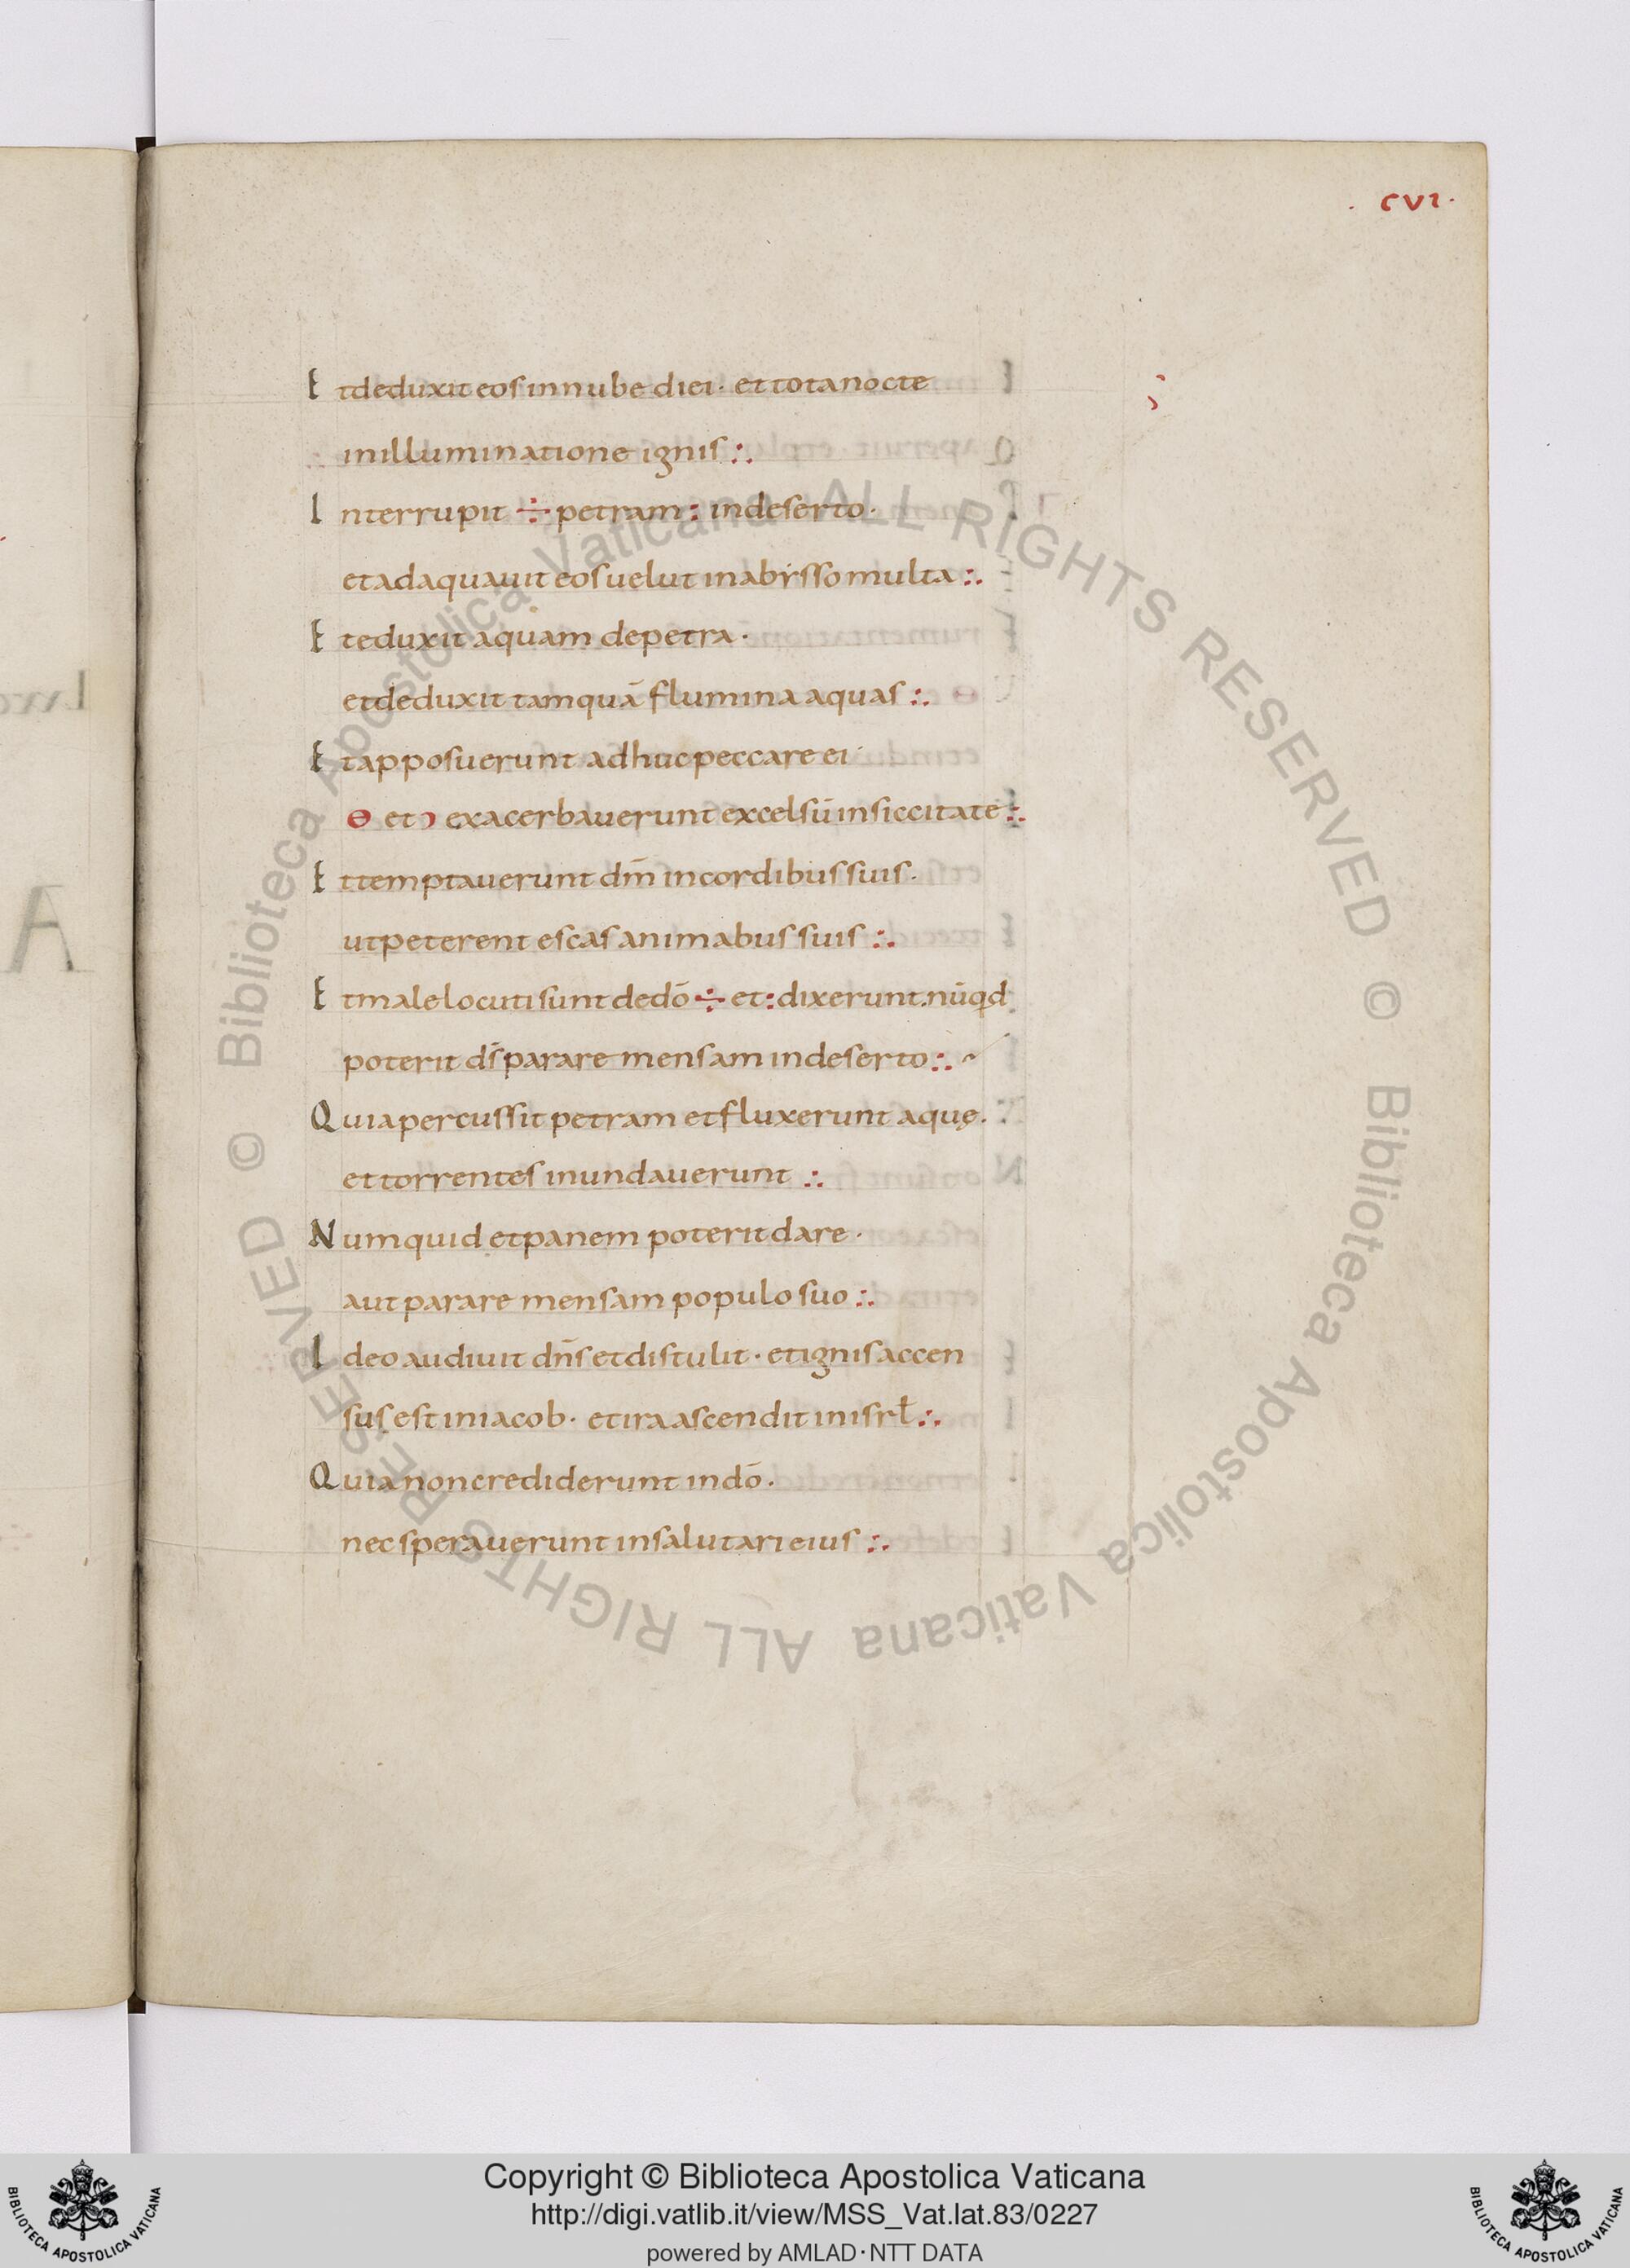 . CVI.
Et deduxit eos in nube diei · et tota nocte
in illuminatione ignis :.
Interrupit ÷ petram : in deserto ·
et adaquauit eos uelut in abysso multa :.
Et eduxit aquam de petra ·
et deduxit tamquā flumina aquas :.
Et apposuerunt adhuc peccare ei ·
ϴ et ͻ exacerbauerunt excelsū in siccitate :.
Et temptauerunt dm̄ in cordibus suis ·
ut peterent escas animabus suis :.
Et male locuti sunt de dō ÷ et : dixerunt. nūqd
poterit ds̄ parare mensam in deserto :.
Quia percussit petram et fluxerunt aquę ·
et torrentes inundauerunt :.
Numquid et panem poterit dare ·
aut parare mensam populo suo :.
Ideo audiuit dn̄s et distulit · et ignis accen
sus est in iacob · et ira ascendit in isrł :.
Quia non crediderunt in dō ·
nec sperauerunt in salutari eius :.
© Biblioteca Apostolica Vaticana ALL RIGHTS RESERVED © Biblioteca Apostolica Vaticana ALL RIGHTS RESERVED
Copyright © Biblioteca Apostolica Vaticana
http://digi.vatlib.it/view/MSS_Vat.lat.83/0227
powered by AMLAD·NTT DATA
BIBLIOTECA APOSTOLICA VATICANA
BIBLIOTECA APOSTOLICA VATICANA